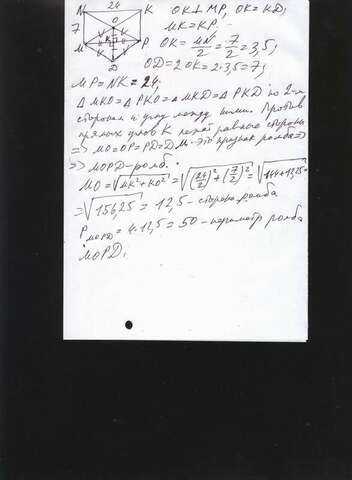 N 24 K
OK ⊥ MP, OK = KD,
7 O
MK = KP.
M K P
OK = MN/2 = 7/2 = 3,5;
D
OD = 2OK = 2·3,5 = 7;
MP = NK = 24;
Δ MKO = Δ PKO = Δ MKD = Δ PKD по 2-м
сторонам и углу между ними. Против
прямых углов K лежат равные стороны
=> MO = OP = PD = DM - это признак ромба =>
=> MOPD - ромб.
MO = √MK²+KO² = √(24/2)²+(7/2)² = √144+12,25 =
= √156,25 = 12,5 - сторона ромба
P MOPD = 4·12,5 = 50 - периметр ромба
MOPD.